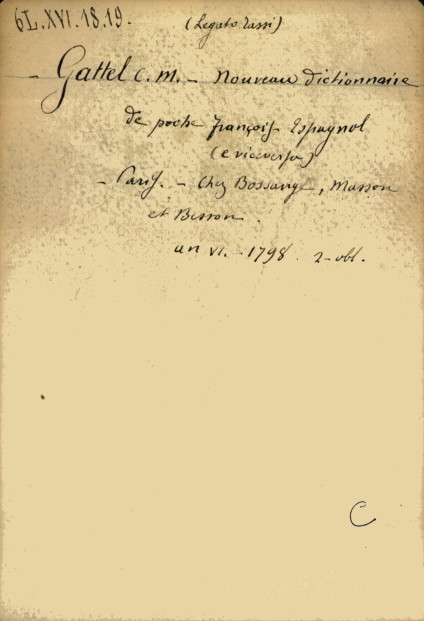 6L.XVI.18.19.
(Legato Tassi)
- Gattel C. M. - Nouveau dictionnaire
de poche françois Espagnol
(e viceversa)
- Paris. - Chez Bossange, Masson
et Besson.
an VI. - 1798. 2-obl.
C